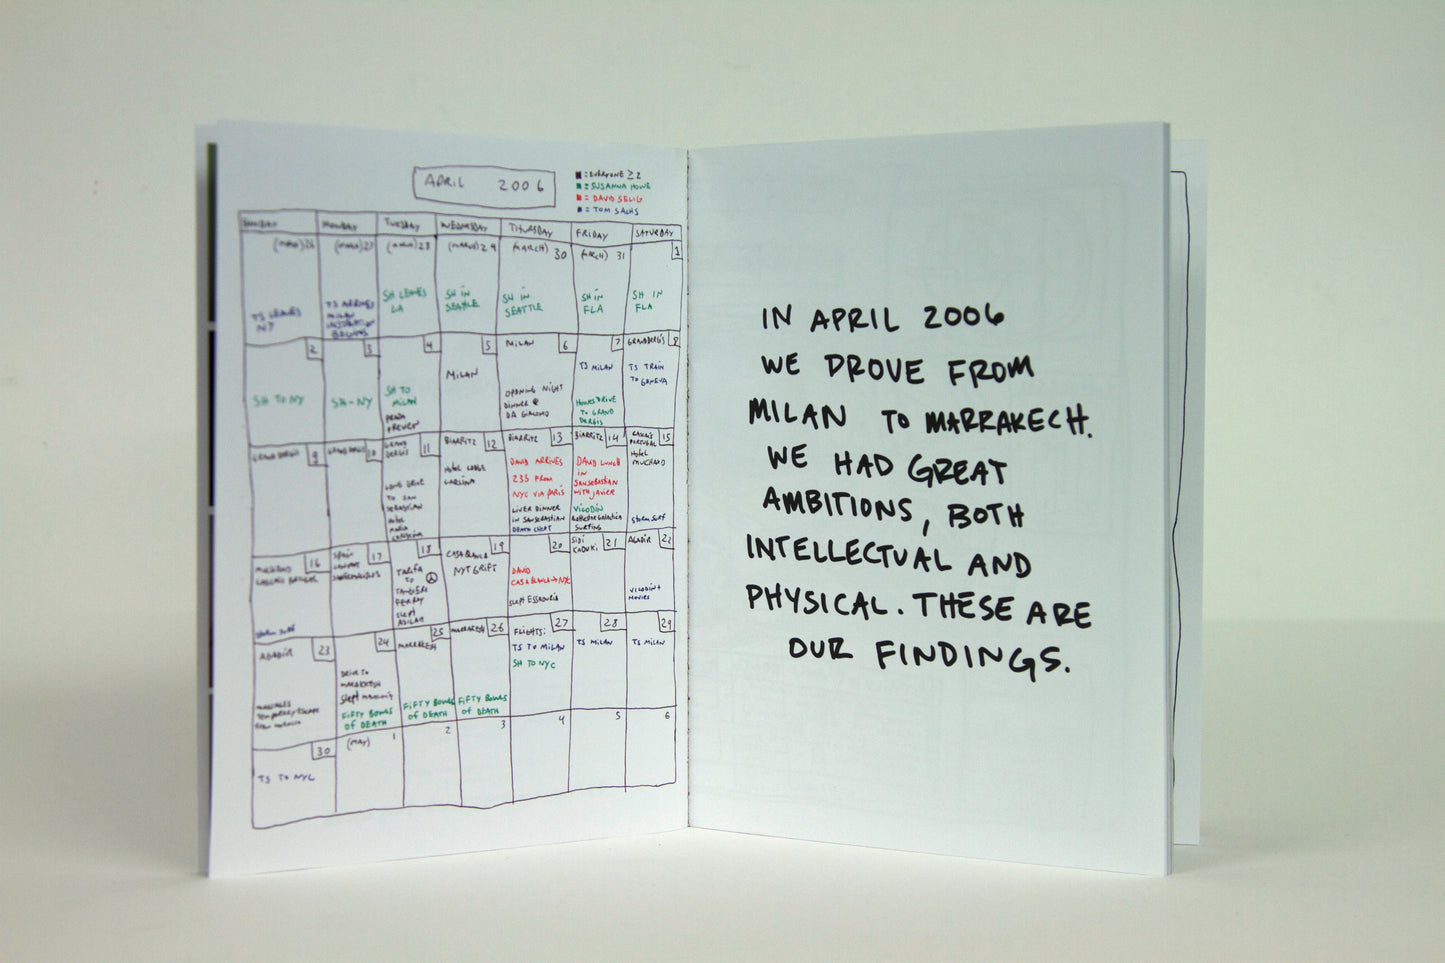 APRIL 2006
= EVERYONE ≥ 2
= SUSANNA HOWE
= DAVID SELIG
= TOM SACHS
SUNDAY MONDAY TUESDAY WEDNESDAY THURSDAY FRIDAY SATURDAY
(MARCH) 26
TS LEAVES
NY
(MARCH) 27
TS ARRIVES
MILAN
INSTALLATION
BEGINS
(MARCH) 28
SH LEAVES
LA
(MARCH) 29
SH IN
SEATTLE
(MARCH) 30
SH IN
SEATTLE
(MARCH) 31
SH IN
FLA
1
SH IN
FLA
2
SH TO NY
3
SH - NY
4
SH TO
MILAN
PRADA
5
MILAN
MILAN 6
OPENING NIGHT
DINNER @
DA GIACOMO
7
TS MILAN
HOWES DRIVE
TO GRAND
DERBIS
8
TS TRAIN
TO GENEVA
9
10
GRAND
11
LONG DRIVE
TO SAN
SEBASTIAN
HOTEL
MARIA
BIARRITZ 12
HOTEL
BIARRITZ 13
DAVID ARRIVES
235 FROM
NYC VIA PARIS
LIVER DINNER
IN SANSEBASTIAN
DEATH CHEAT
BIARRITZ 14
DAVID LUNCH
IN
SANSEBASTIAN
WITH JAVIER
VICODIN
Battlestar Galactica
SURFING
15
PORTUGAL
Hotel
MUCHAXO
STORM SURF
MUCHAXO 16
CASCAIS PORTUGAL
STORM SURF
SPAIN 17
18
TARIFA
TO
TANGIERS
FERRY
SLEPT
ASILAH
19
CASABLANCA
NYT GRIFT
20
DAVID
CASABLANCA → NYC
SLEPT ESSAOUIRA
SIDI
KAOUKI 21
AGADIR 22
VICODIN +
MOVIES
AGADIR 23
MASSAGES
TEMPORARY ESCAPE
FROM
24
DRIVE TO
MARRAKESH
SLEPT
FIFTY BOWLS
OF DEATH
25
MARRAKESH
FIFTY BOWLS
OF DEATH
MARRAKESH 26
FIFTY BOWLS
OF DEATH
FLIGHTS: 27
TS TO MILAN
SH TO NYC
28
TS MILAN
29
TS MILAN
30
TS TO NYC
(MAY) 1
2
3
4
5
6
IN APRIL 2006
WE DROVE FROM
MILAN TO MARRAKECH.
WE HAD GREAT
AMBITIONS, BOTH
INTELLECTUAL AND
PHYSICAL. THESE ARE
OUR FINDINGS.